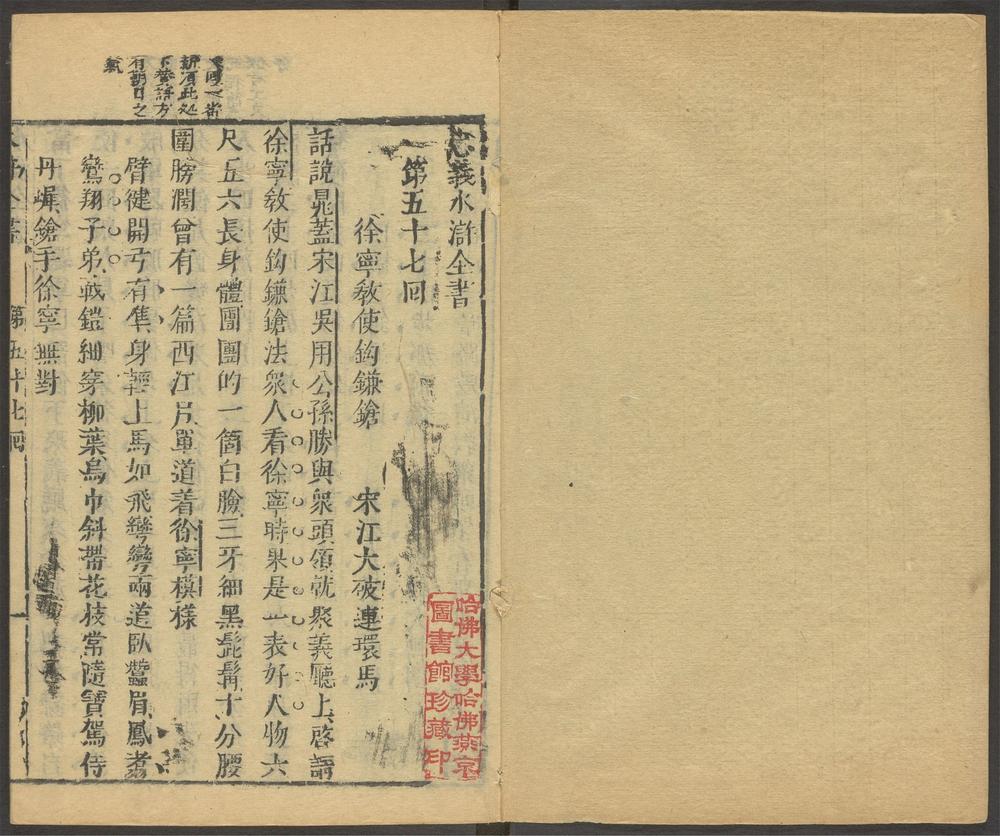 忠義水滸全書
第五十七囘
徐寧敎使鈎鎌鎗　宋江大破連環馬
話說晁蓋宋江吳用公孫勝與衆頭領就聚義廳上啓請
徐寧敎使鈎鎌鎗法衆人看徐寧時果是一表好人物六
尺五六長身體團團的一箇白臉三牙細黑髭髯十分腰
圍膀濶曾有一篇西江月單道着徐寧模樣
臂徤開弓有隼身輕上馬如飛彎彎兩道臥蠶眉鳳翥
鸞翔子弟戰鎧細穿柳葉烏巾斜帶花枝常隨寶駕侍
丹墀鎗手徐寧無對
水滸全書
第五十七囘
一
有朝日之
氣
哈佛大學哈佛燕京
圖書館珍藏印